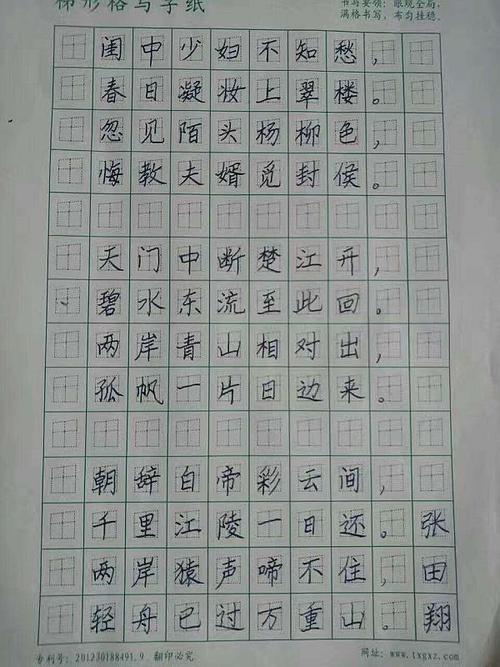 梯形格写字纸
书写要领：眼观全局，
满格书写，布匀挂稳。
闺中少妇不知愁，
春日凝妆上翠楼。
忽见陌头杨柳色，
悔教夫婿觅封侯。
天门中断楚江开，
碧水东流至此回。
两岸青山相对出，
孤帆一片日边来。
朝辞白帝彩云间，
千里江陵一日还。张
两岸猿声啼不住，田
轻舟已过万重山。翔
专利号：201230188491.9 翻印必究
网址：www.txgxz.com